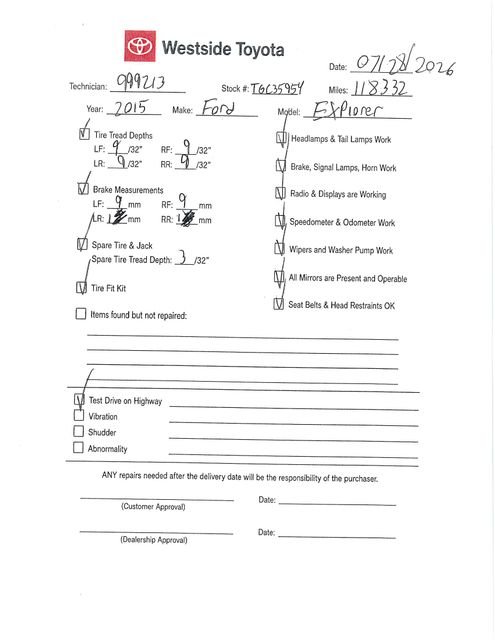 Westside Toyota
Date: 07/28/2026
Technician: 999213 Stock #: TGC35954 Miles: 118332
Year: 2015 Make: Ford Model: EXPlorer
Tire Tread Depths
LF: 9 /32" RF: 9 /32"
LR: 9 /32" RR: 9 /32"
Brake Measurements
LF: 9 mm RF: 9 mm
LR: mm RR: mm
Spare Tire & Jack
Spare Tire Tread Depth: 3 /32"
Tire Fit Kit
Items found but not repaired:
Headlamps & Tail Lamps Work
Brake, Signal Lamps, Horn Work
Radio & Displays are Working
Speedometer & Odometer Work
Wipers and Washer Pump Work
All Mirrors are Present and Operable
Seat Belts & Head Restraints OK
Test Drive on Highway
Vibration
Shudder
Abnormality
ANY repairs needed after the delivery date will be the responsibility of the purchaser.
Date:
(Customer Approval)
Date:
(Dealership Approval)